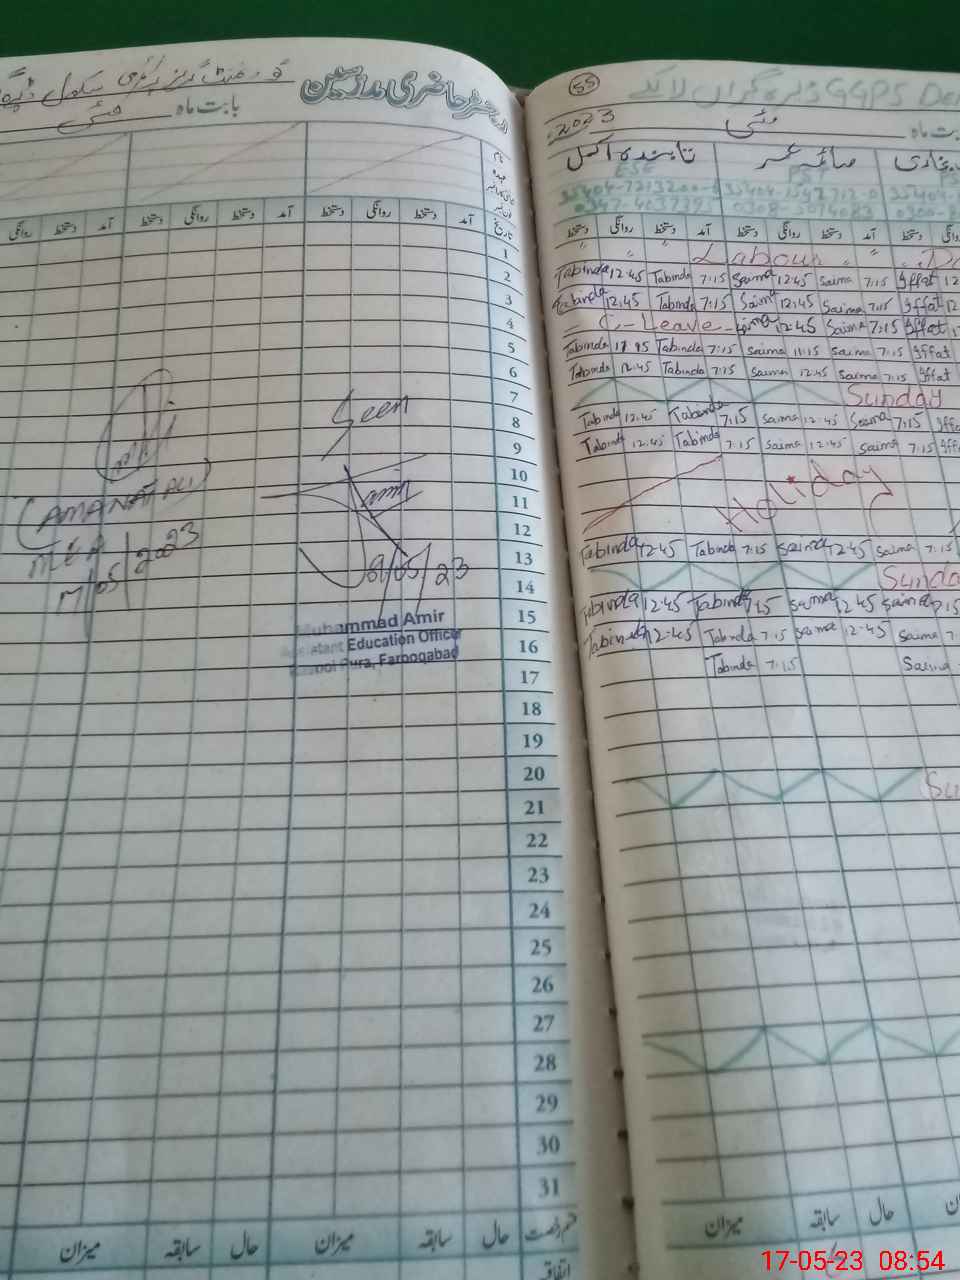 رجسٹر حاضری مدرسین
گورنمنٹ گرلز پرائمری سکول
بابت ماہ مئی
نام
عہدہ
تاریخ آمد دستخط روانگی دستخط آمد دستخط روانگی دستخط آمد دستخط روانگی
1
2
3
4
5
6
7
8
9
10
11
12
13
14
15
16
17
18
19
20
21
22
23
24
25
26
27
28
29
30
31
Seen
Amir
9/05/23
Muhammad Amir
Assistant Education Officer
Farooqabad
(AMANAT ALI)
MEA
17/05/2023
حال سابقہ میزان حال سابقہ میزان
اتفاقیہ
55
GGPS
بابت ماہ مئی 2023
بخاری صائمہ عمر تابندہ اکمل
PST ESE
روانگی دستخط آمد دستخط روانگی دستخط آمد دستخط روانگی دستخط
" " " Labour " "
Tabinda 12:45 Tabinda 7:15 Saima 12:45 Saima 7:15 Iffat
Tabinda 12:45 Tabinda 7:15 Saima 12:45 Saima 7:15 Iffat
C-Leave Saima 12:45 Saima 7:15 Iffat
Tabinda Tabinda 7:15 Saima 11:15 Saima 7:15 Iffat
Tabinda 12:45 Tabinda 7:15 Saima 12:45 Saima 7:15 Iffat
Sunday
Tabinda 12:45 Tabinda 7:15 Saima 12:45 Saima 7:15
Tabinda 12:45 Tabinda 7:15 Saima 12:45 Saima 7:15
Holiday
Tabinda 12:45 Tabinda 7:15 Saima 12:45 Saima 7:15
Sunda
Tabinda 12:45 Tabinda 7:15 Saima 12:45 Saima 7:15
Tabinda 12:45 Tabinda 7:15 Saima 12:45 Saima 7:15
Tabinda 7:15 Saima
Su
حال سابقہ میزان
17-05-23 08:54